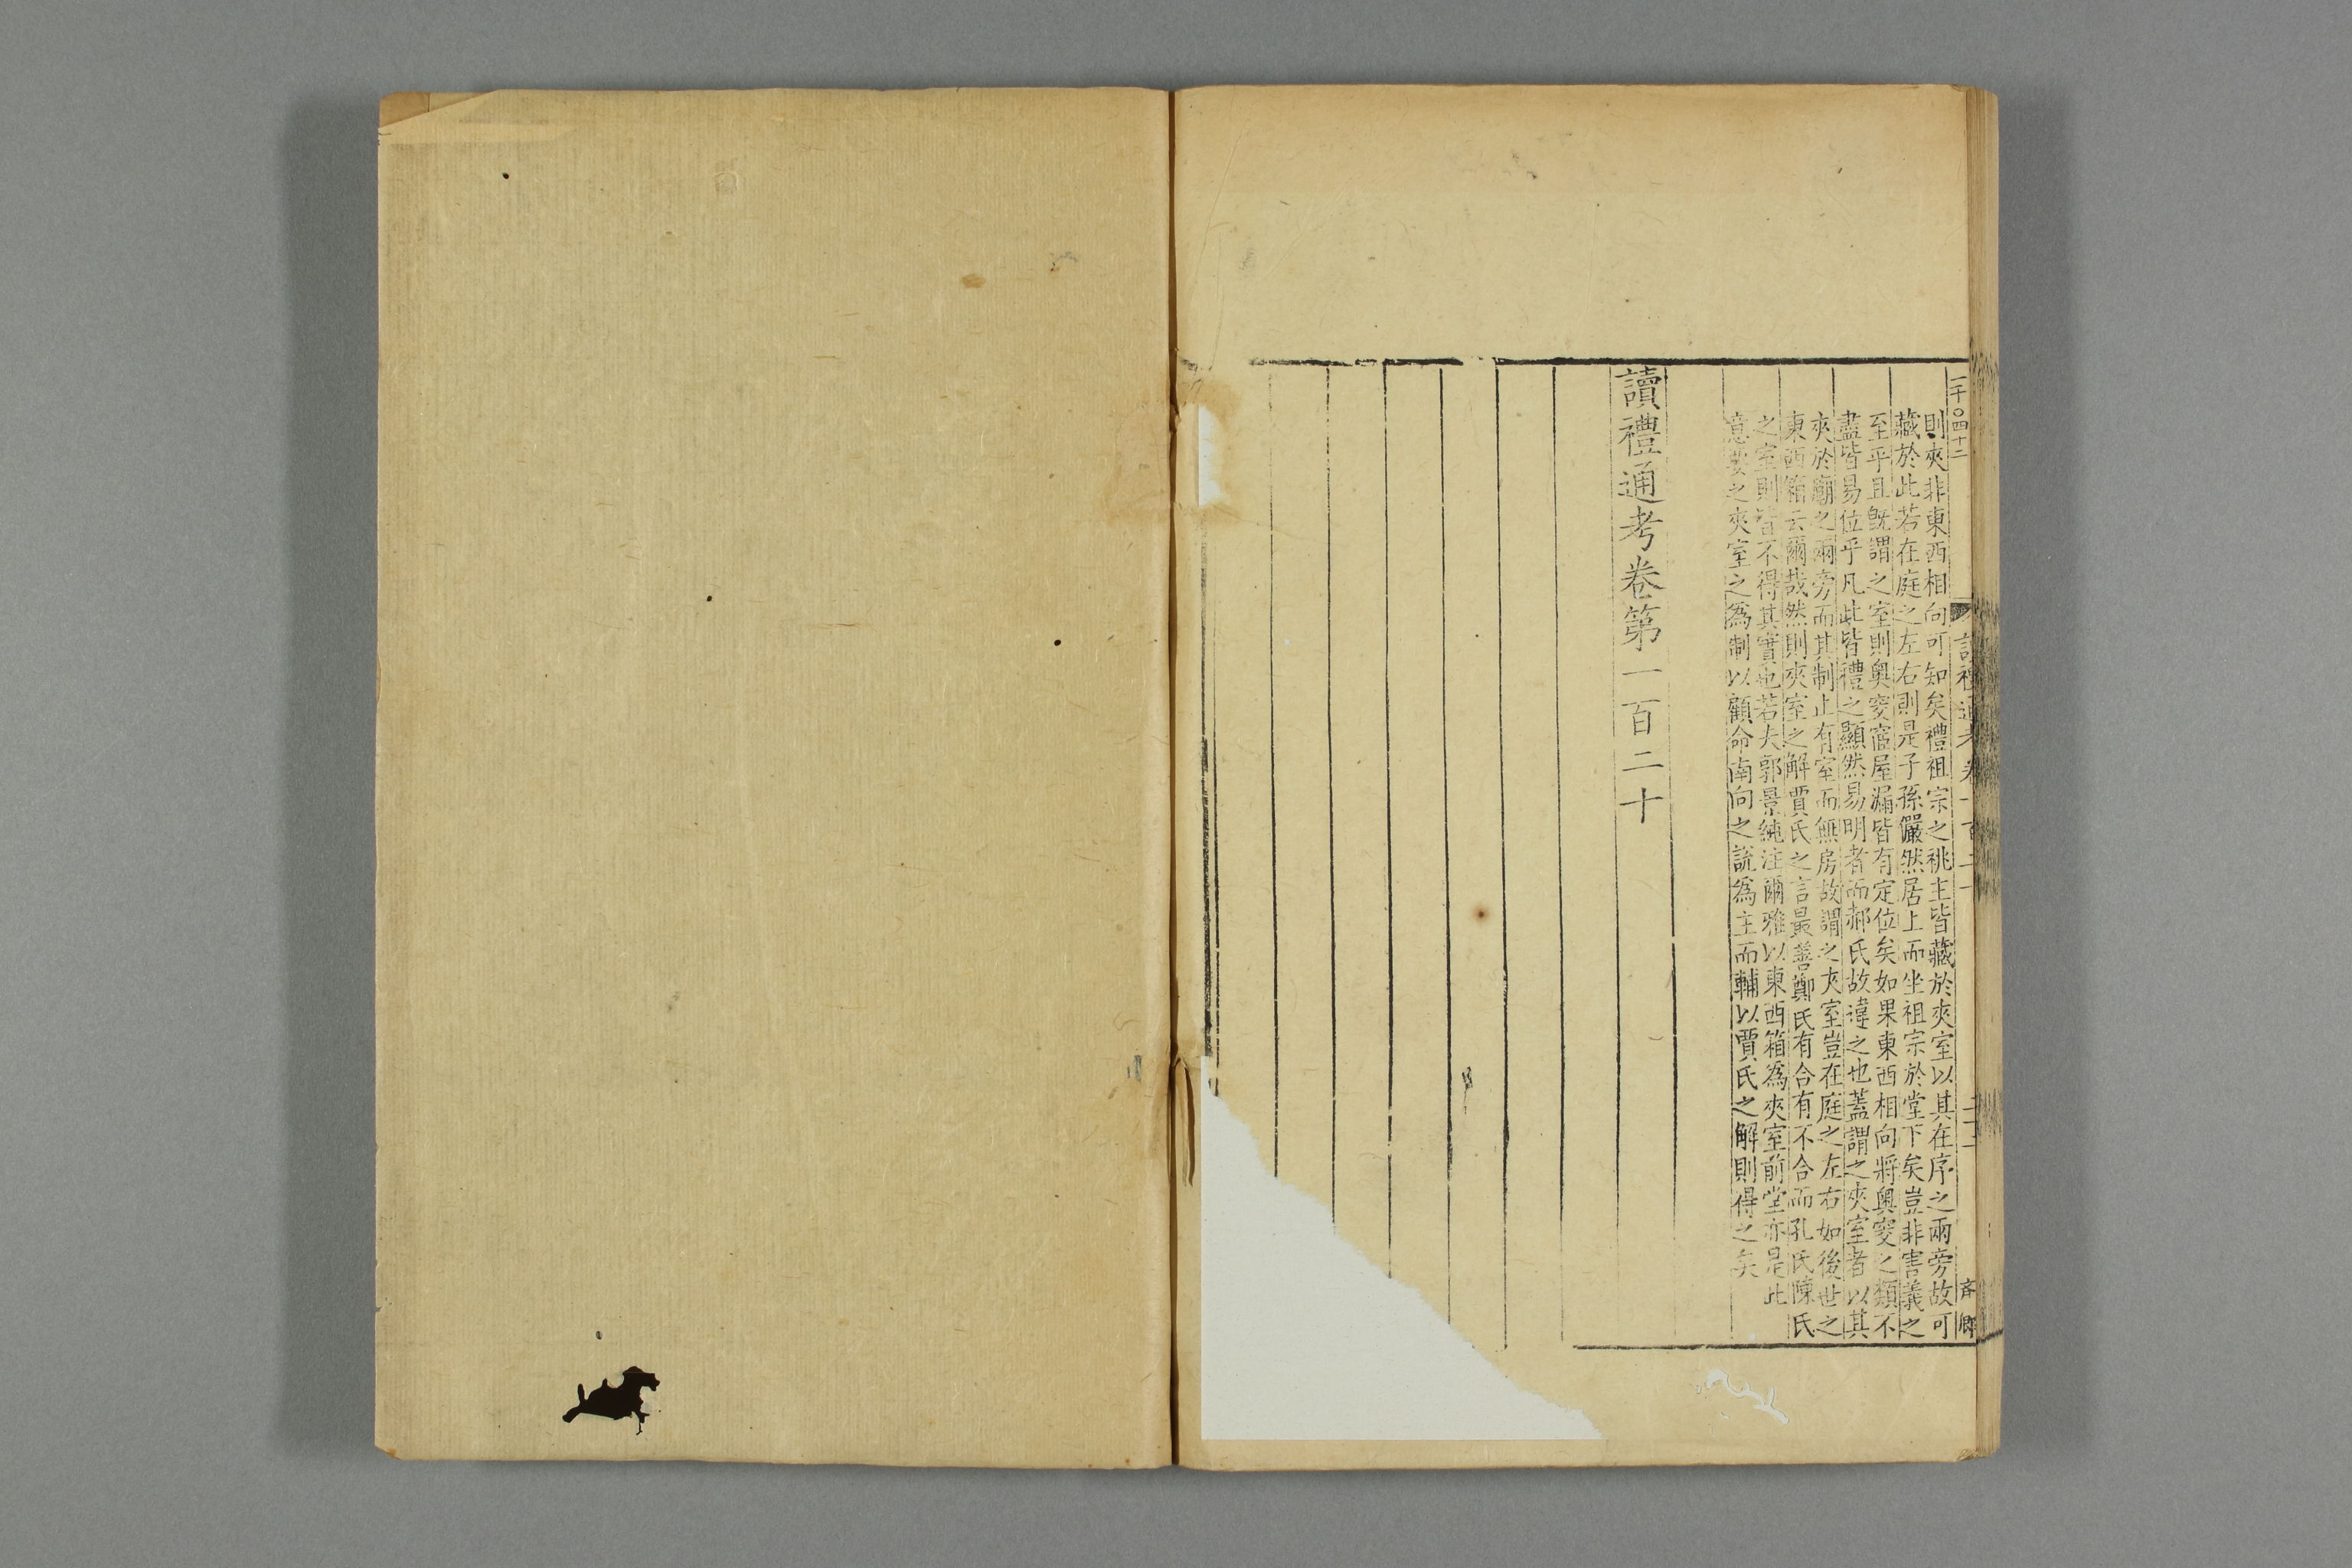 一千〇四十二
讀禮通考卷一百二十
斉卿
則夾非東西相向可知矣禮祖宗之祧主皆藏於夾室以其在序之兩旁故可
藏於此若在庭之左右則是子孫儼然居上而坐祖宗於堂下矣豈非害義之
至乎且旣謂之室則奧窔宧屋漏皆有定位矣如果東西相向將奧窔之類不
盡皆易位乎凡此皆禮之顯然易明者而郝氏故違之也蓋謂之夾室者以其
夾於廟之兩旁而其制止有室而無房故謂之夾室豈在庭之左右如後世之
東西箱云爾哉然則夾室之解賈氏之言最善鄭氏有合有不合而孔氏陳氏
之室則皆不得其實也若夫郭景純注爾雅以東西箱為夾室前堂亦是此
意要之夾室之為制以顧命南向之說為主而輔以賈氏之解則得之矣
讀禮通考卷第一百二十